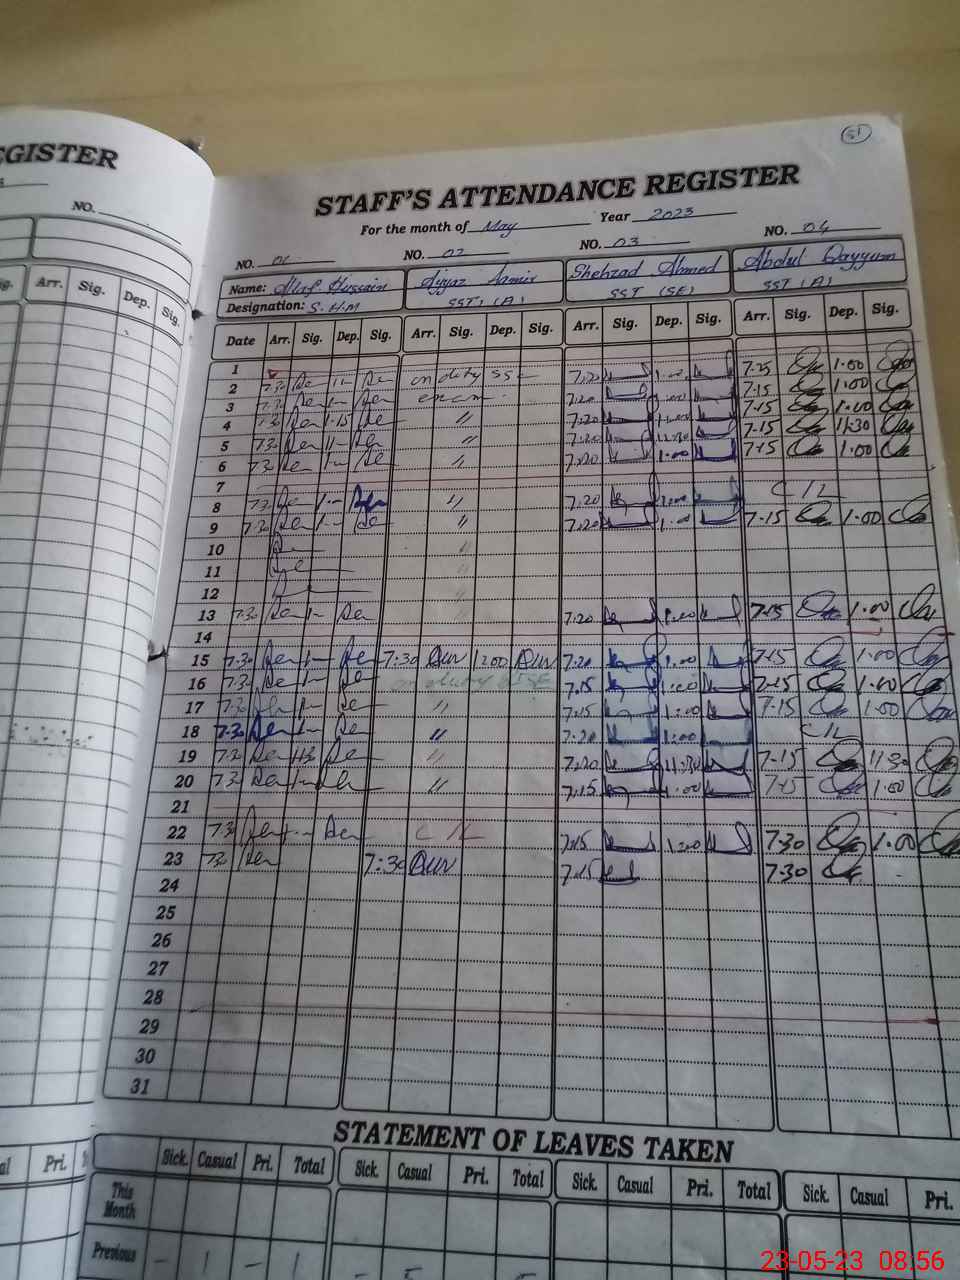 EGISTER
NO.
Arr. Sig. Dep. Sig.
51
STAFF'S ATTENDANCE REGISTER
For the month of May Year 2023
NO. 01 NO. 02 NO. 03 NO. 04
Name: Altaf Hussain Ayyaz Aamir Shehzad Ahmed Abdul Qayyum
Designation: S.H.M SST (A) SST (SE) SST (A)
Date Arr. Sig. Dep. Sig. Arr. Sig. Dep. Sig. Arr. Sig. Dep. Sig. Arr. Sig. Dep. Sig.
1
2 7.30 1- on duty SSC 7.20 1.00 7.25 1.00
3 7.30 1- exam. 7.20 1.00 7.15 1.00
4 7.30 1.15 " 7.20 1.00 7.15 1.00
5 7.30 11- " 7.20 11.30 7.15 11.30
6 7.30 1- " 7.20 1.00 7.15 1.00
7
8 7.30 1- " 7.20 1.00 C/L
9 7.30 1- " 7.20 1.00 7.15 1.00
10 "
11 "
12 "
13 7.30 1- 7.20 1.00 7.15 1.00
14
15 7.30 1- 7:30 1200 7.20 1.00 7.15 1.00
16 7.30 1- on duty SSC 7.15 1.00 7.15 1.00
17 7.30 1- " 7.15 1:00 7.15 1.00
18 7.30 1- " 7.20 1:00 C/L
19 7.30 " 7.20 11.30 7.15 11.30
20 7.30 1- " 7.15 1.00 7.15 1.00
21
22 7.30 1- C/L 7.15 1.00 7.30 1.00
23 7.30 7:30 7.15 7.30
24
25
26
27
28
29
30
31
STATEMENT OF LEAVES TAKEN
al Pri.
Sick. Casual Pri. Total Sick. Casual Pri. Total Sick. Casual Pri. Total Sick. Casual Pri.
This Month
Previous - 1 - 1 - 5 5
23-05-23 08:56